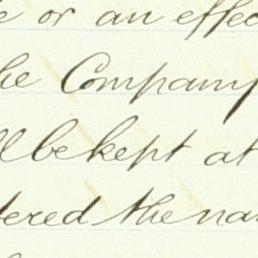 e or an effec
he Company
ll be kept at
tered the na